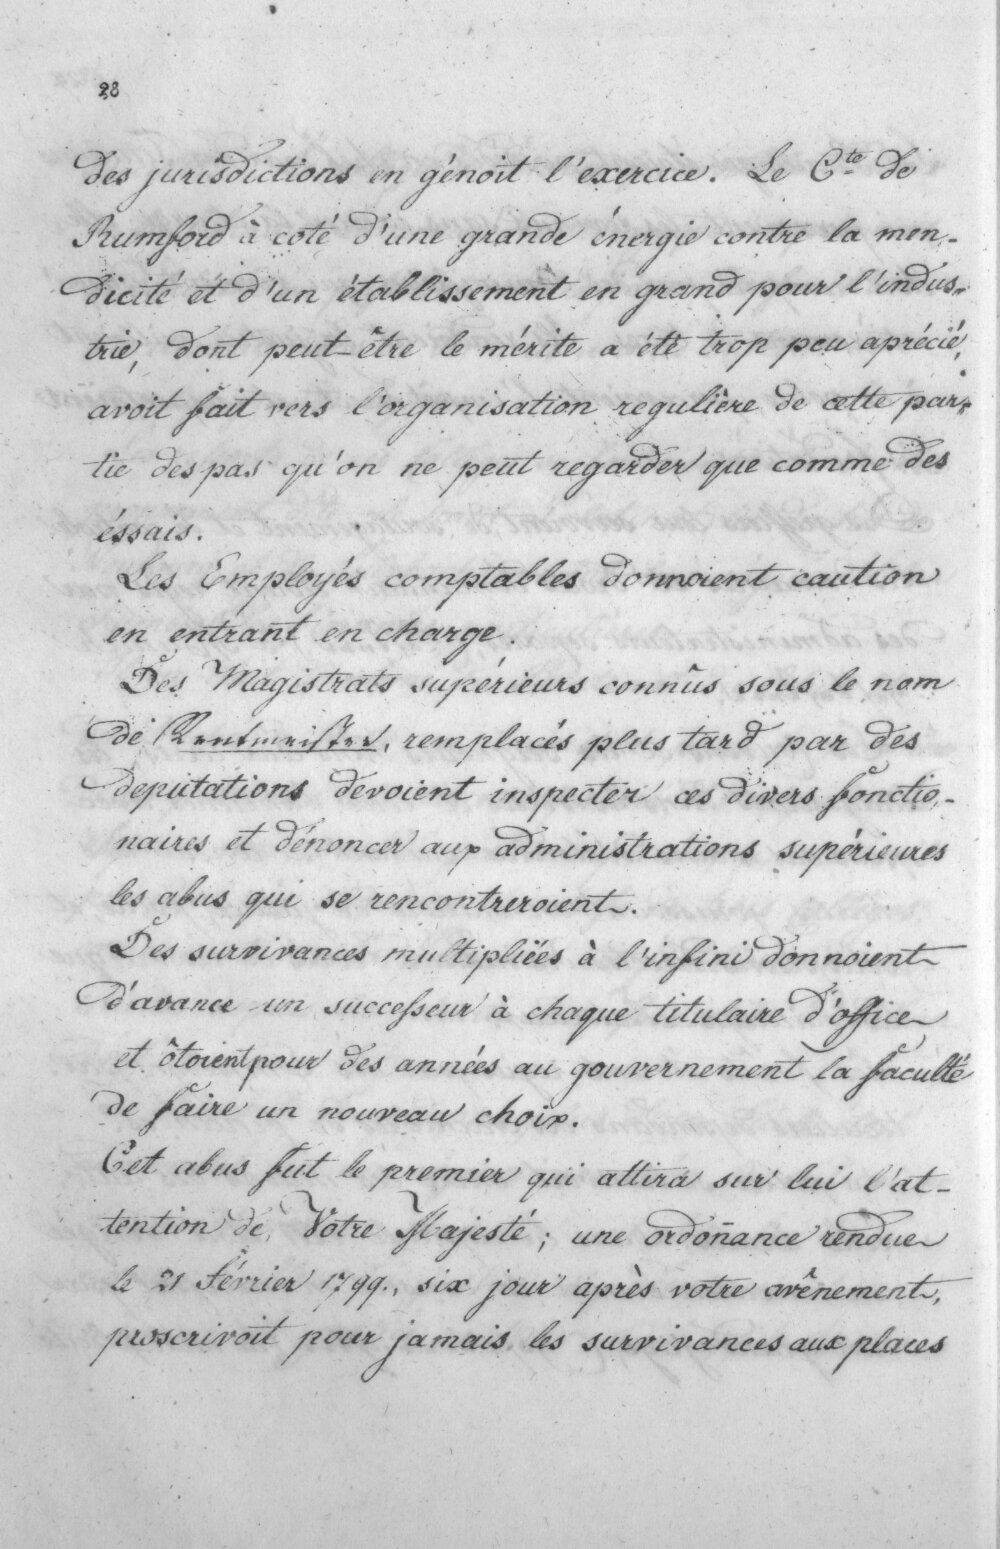 28
des jurisdictions en génoit l'exercice. Le Cte de
Rumford à coté d'une grande énergie contre la men-
dicité et d'un établissement en grand pour l'indus-
trie, dont peut-être le mérite a été trop peu aprécié,
avoit fait vers l'organisation regulière de cette par-
tie des pas qu'on ne peut regarder que comme des
éssais.
Les Employés comptables donnoient caution
en entrant en charge.
Des Magistrats supérieurs connûs sous le nom
de Rentmeister, remplacés plus tard par des
deputations devoient inspecter ces divers fonctio-
naires et dénoncer aux administrations supérieures
les abus qui se rencontreroient.
Des survivances multipliées à l'infini donnoient
d'avance un successeur à chaque titulaire d'office
et ôtoient pour des années au gouvernement la faculté
de faire un nouveau choix.
Cet abus fut le premier qui attira sur lui l'at-
tention de Votre Majesté; une ordoñance rendue
le 21 Février 1799., six jour après votre avênement,
proscrivoit pour jamais les survivances aux places